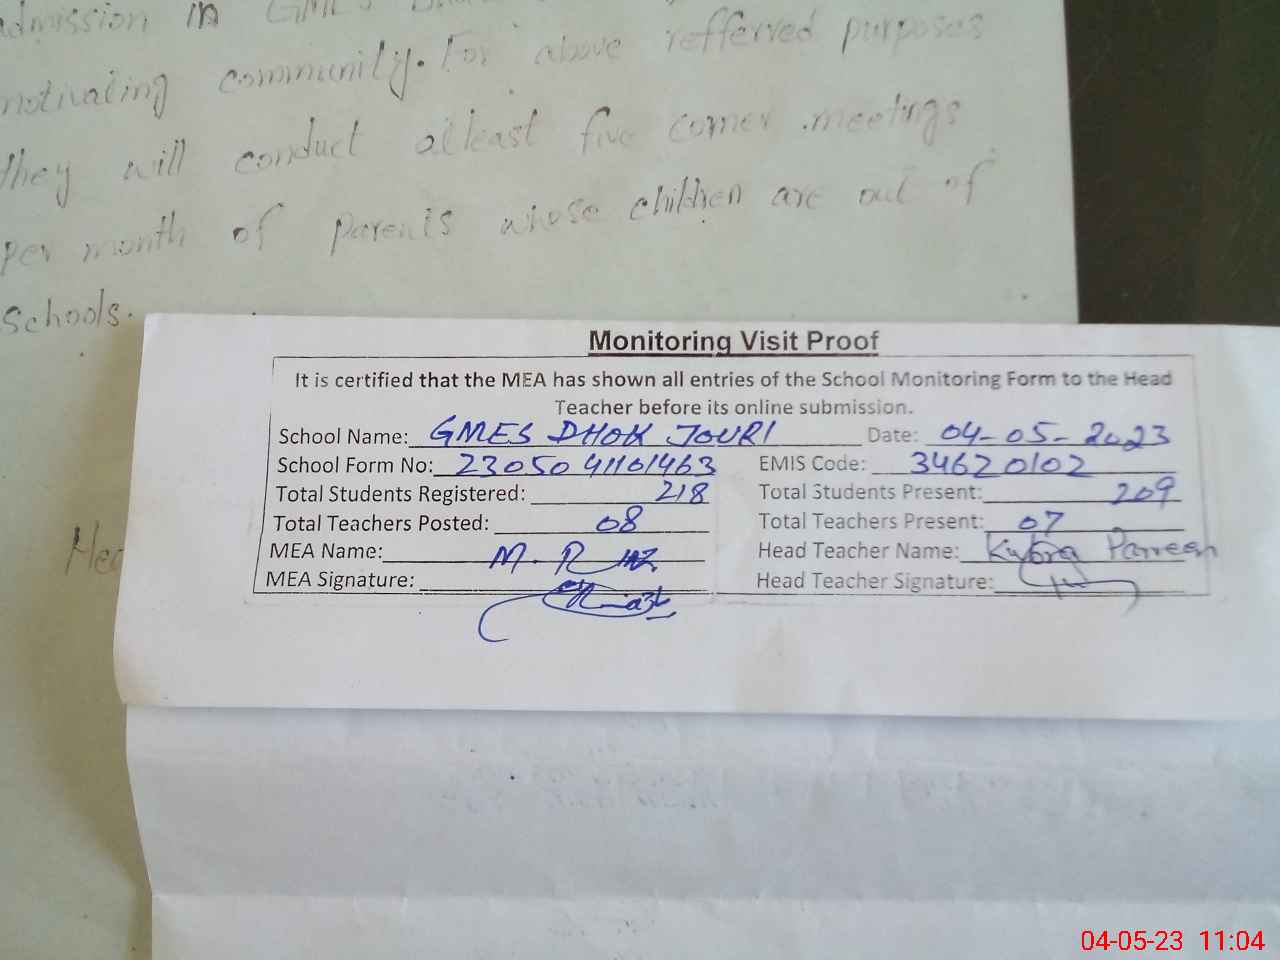 admission in GMES
motivating community. For above refferred purposes
they will conduct atleast five corner meetings
per month of parents whose children are out of
schools.
Monitoring Visit Proof
It is certified that the MEA has shown all entries of the School Monitoring Form to the Head
Teacher before its online submission.
School Name: GMES DHOK JOURI Date: 04-05-2023
School Form No: 2305041101463 EMIS Code: 34620102
Total Students Registered: 218 Total Students Present: 209
Total Teachers Posted: 08 Total Teachers Present: 07
MEA Name: M. Head Teacher Name: Kubra Parveen
MEA Signature: Head Teacher Signature:
04-05-23 11:04